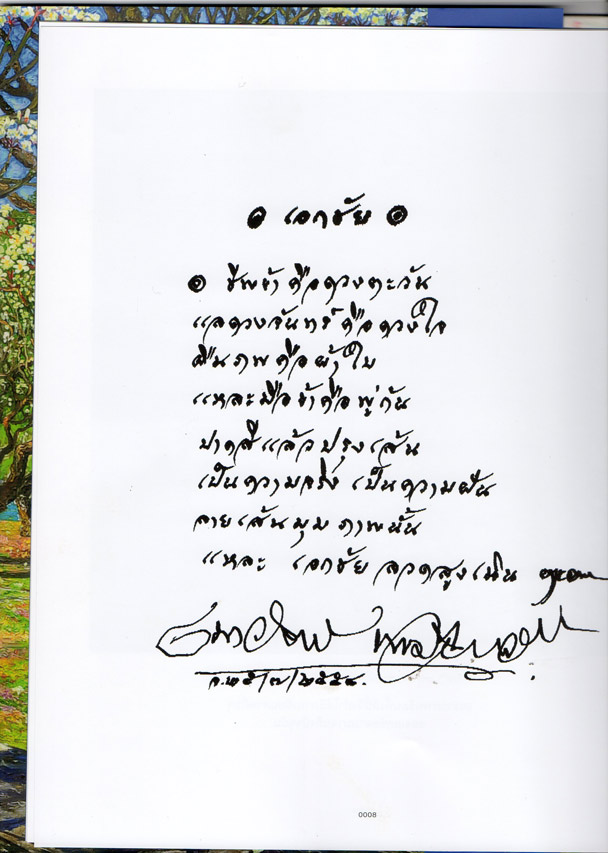 ๏ เอกชัย ๏
๏ ชีพข้าคือดวงตะวัน
แลดวงจันทร์คือดวงใจ
ผืนภาพคือผ้าใบ
แหละมือข้าคือพู่กัน
ปาดสีแล้วปรุงเส้น
เป็นความจริง เป็นความฝัน
ลายเส้นมุมภาพนั้น
แหละ เอกชัย ลวดสูงเนิน
จ.๒๕/๗/๒๕๕๔.
0008